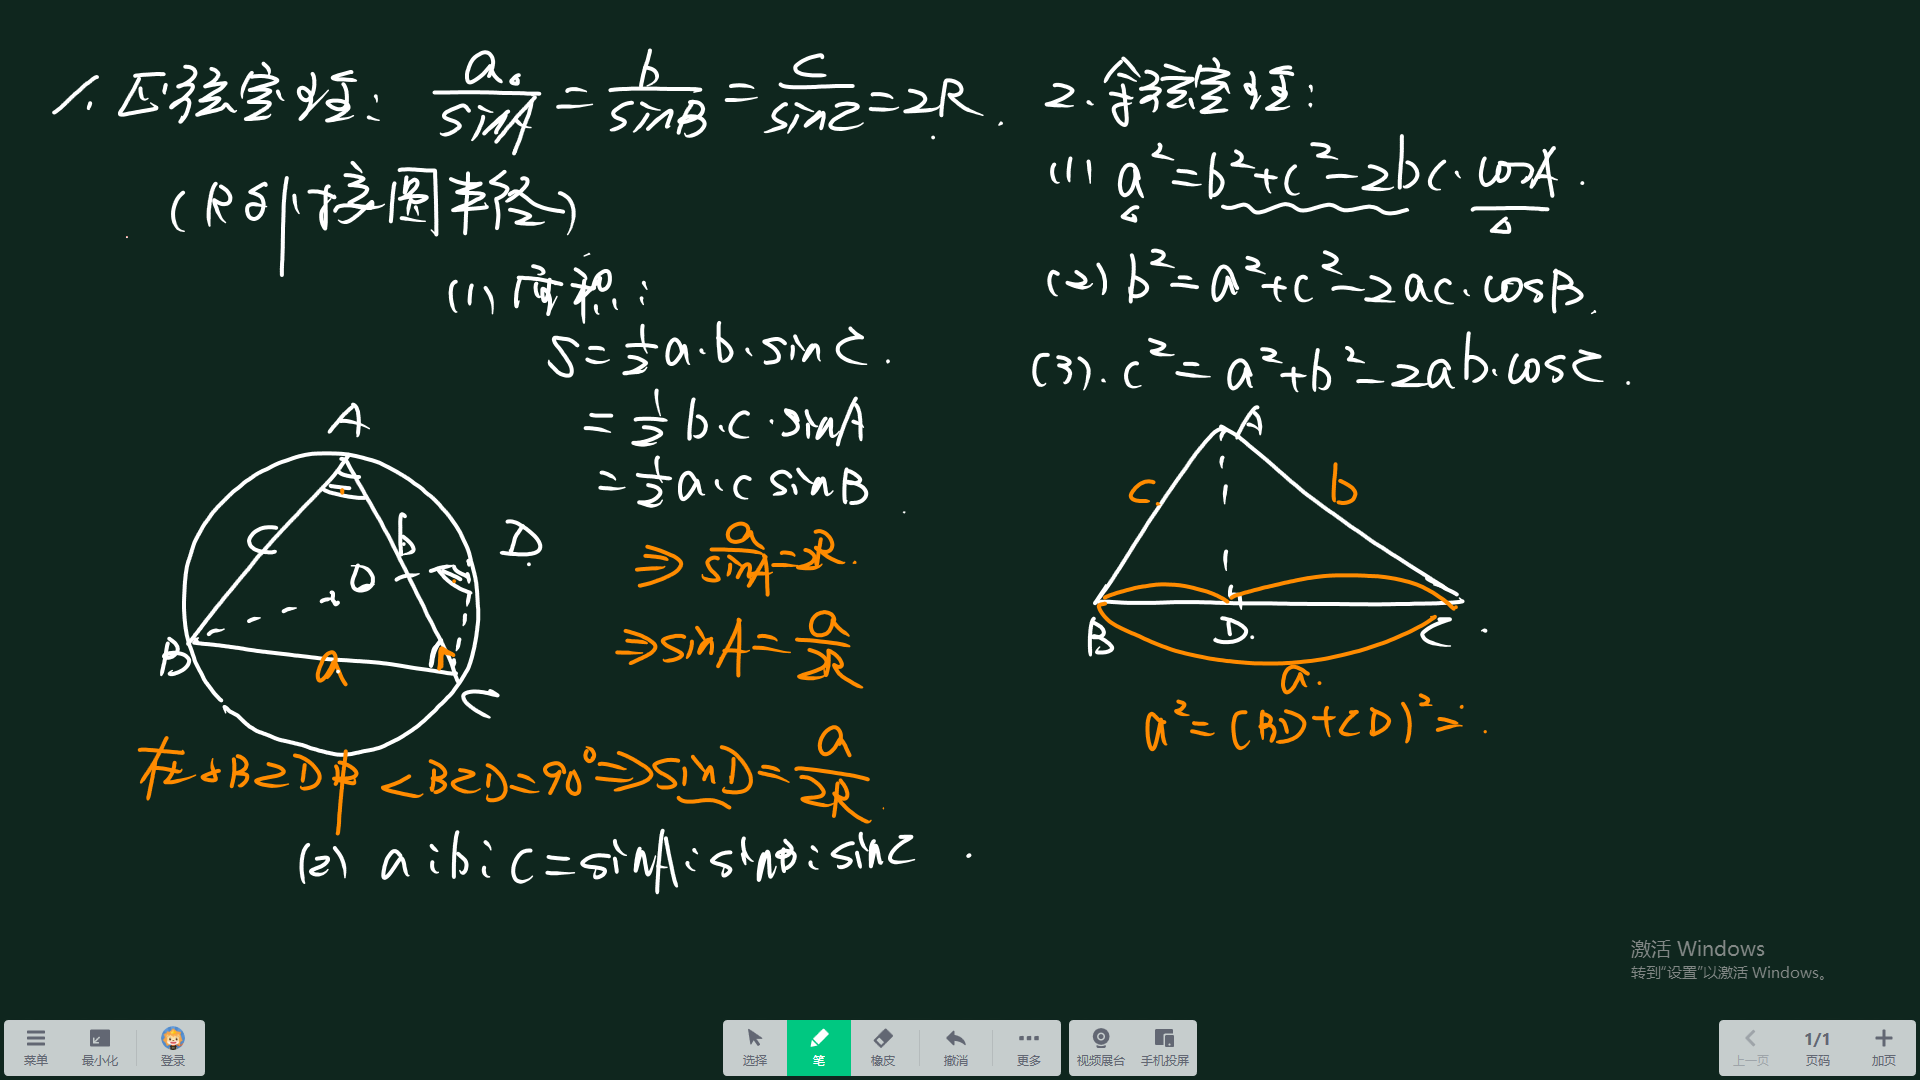 1. 正弦定理: a/sinA = b/sinB = c/sinC = 2R.
(R为外接圆半径)
(1) 面积:
S = 1/2 a·b·sinC.
= 1/2 b·c·sinA
= 1/2 a·c sinB
A
c
b
D
O
B
a
C
⇒ a/sinA = 2R.
⇒ sinA = a/2R
在△BCD中 ∠BCD = 90° ⇒ sinD = a/2R
(2) a:b:c = sinA:sinB:sinC
2. 余弦定理:
(1) a² = b² + c² - 2bc·cosA.
(2) b² = a² + c² - 2ac·cosB.
(3). c² = a² + b² - 2ab·cosC.
A
c.
b
B
D.
C
a.
a² = (BD+CD)² =
激活 Windows
转到"设置"以激活 Windows。
菜单
最小化
登录
选择
笔
橡皮
撤消
更多
视频展台
手机投屏
上一页
1/1
页码
加页